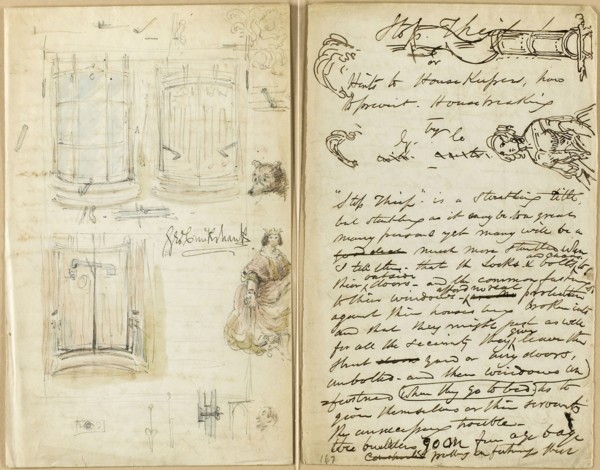 Geo Cruikshank
Stop Thief
or
Hints to HouseKeepers, how
to prevent Housebreaking
by
"Stop Thief" is a Startling title,
but startling as it may be to a great
many persons yet many will be a
much more startled when
I tell them that the Locks & bolts, to
their doors - and the common
outside
to their windows - afford no real protection
against their houses being broken into
and that they might just as well
for all the security they give, leave their
street yard or airy doors,
unbolted - and their windows un
fastened (when they go to bed) as to
give themselves or their servants
the unnecessary trouble -
go on from age to age
167 putting or fixing their